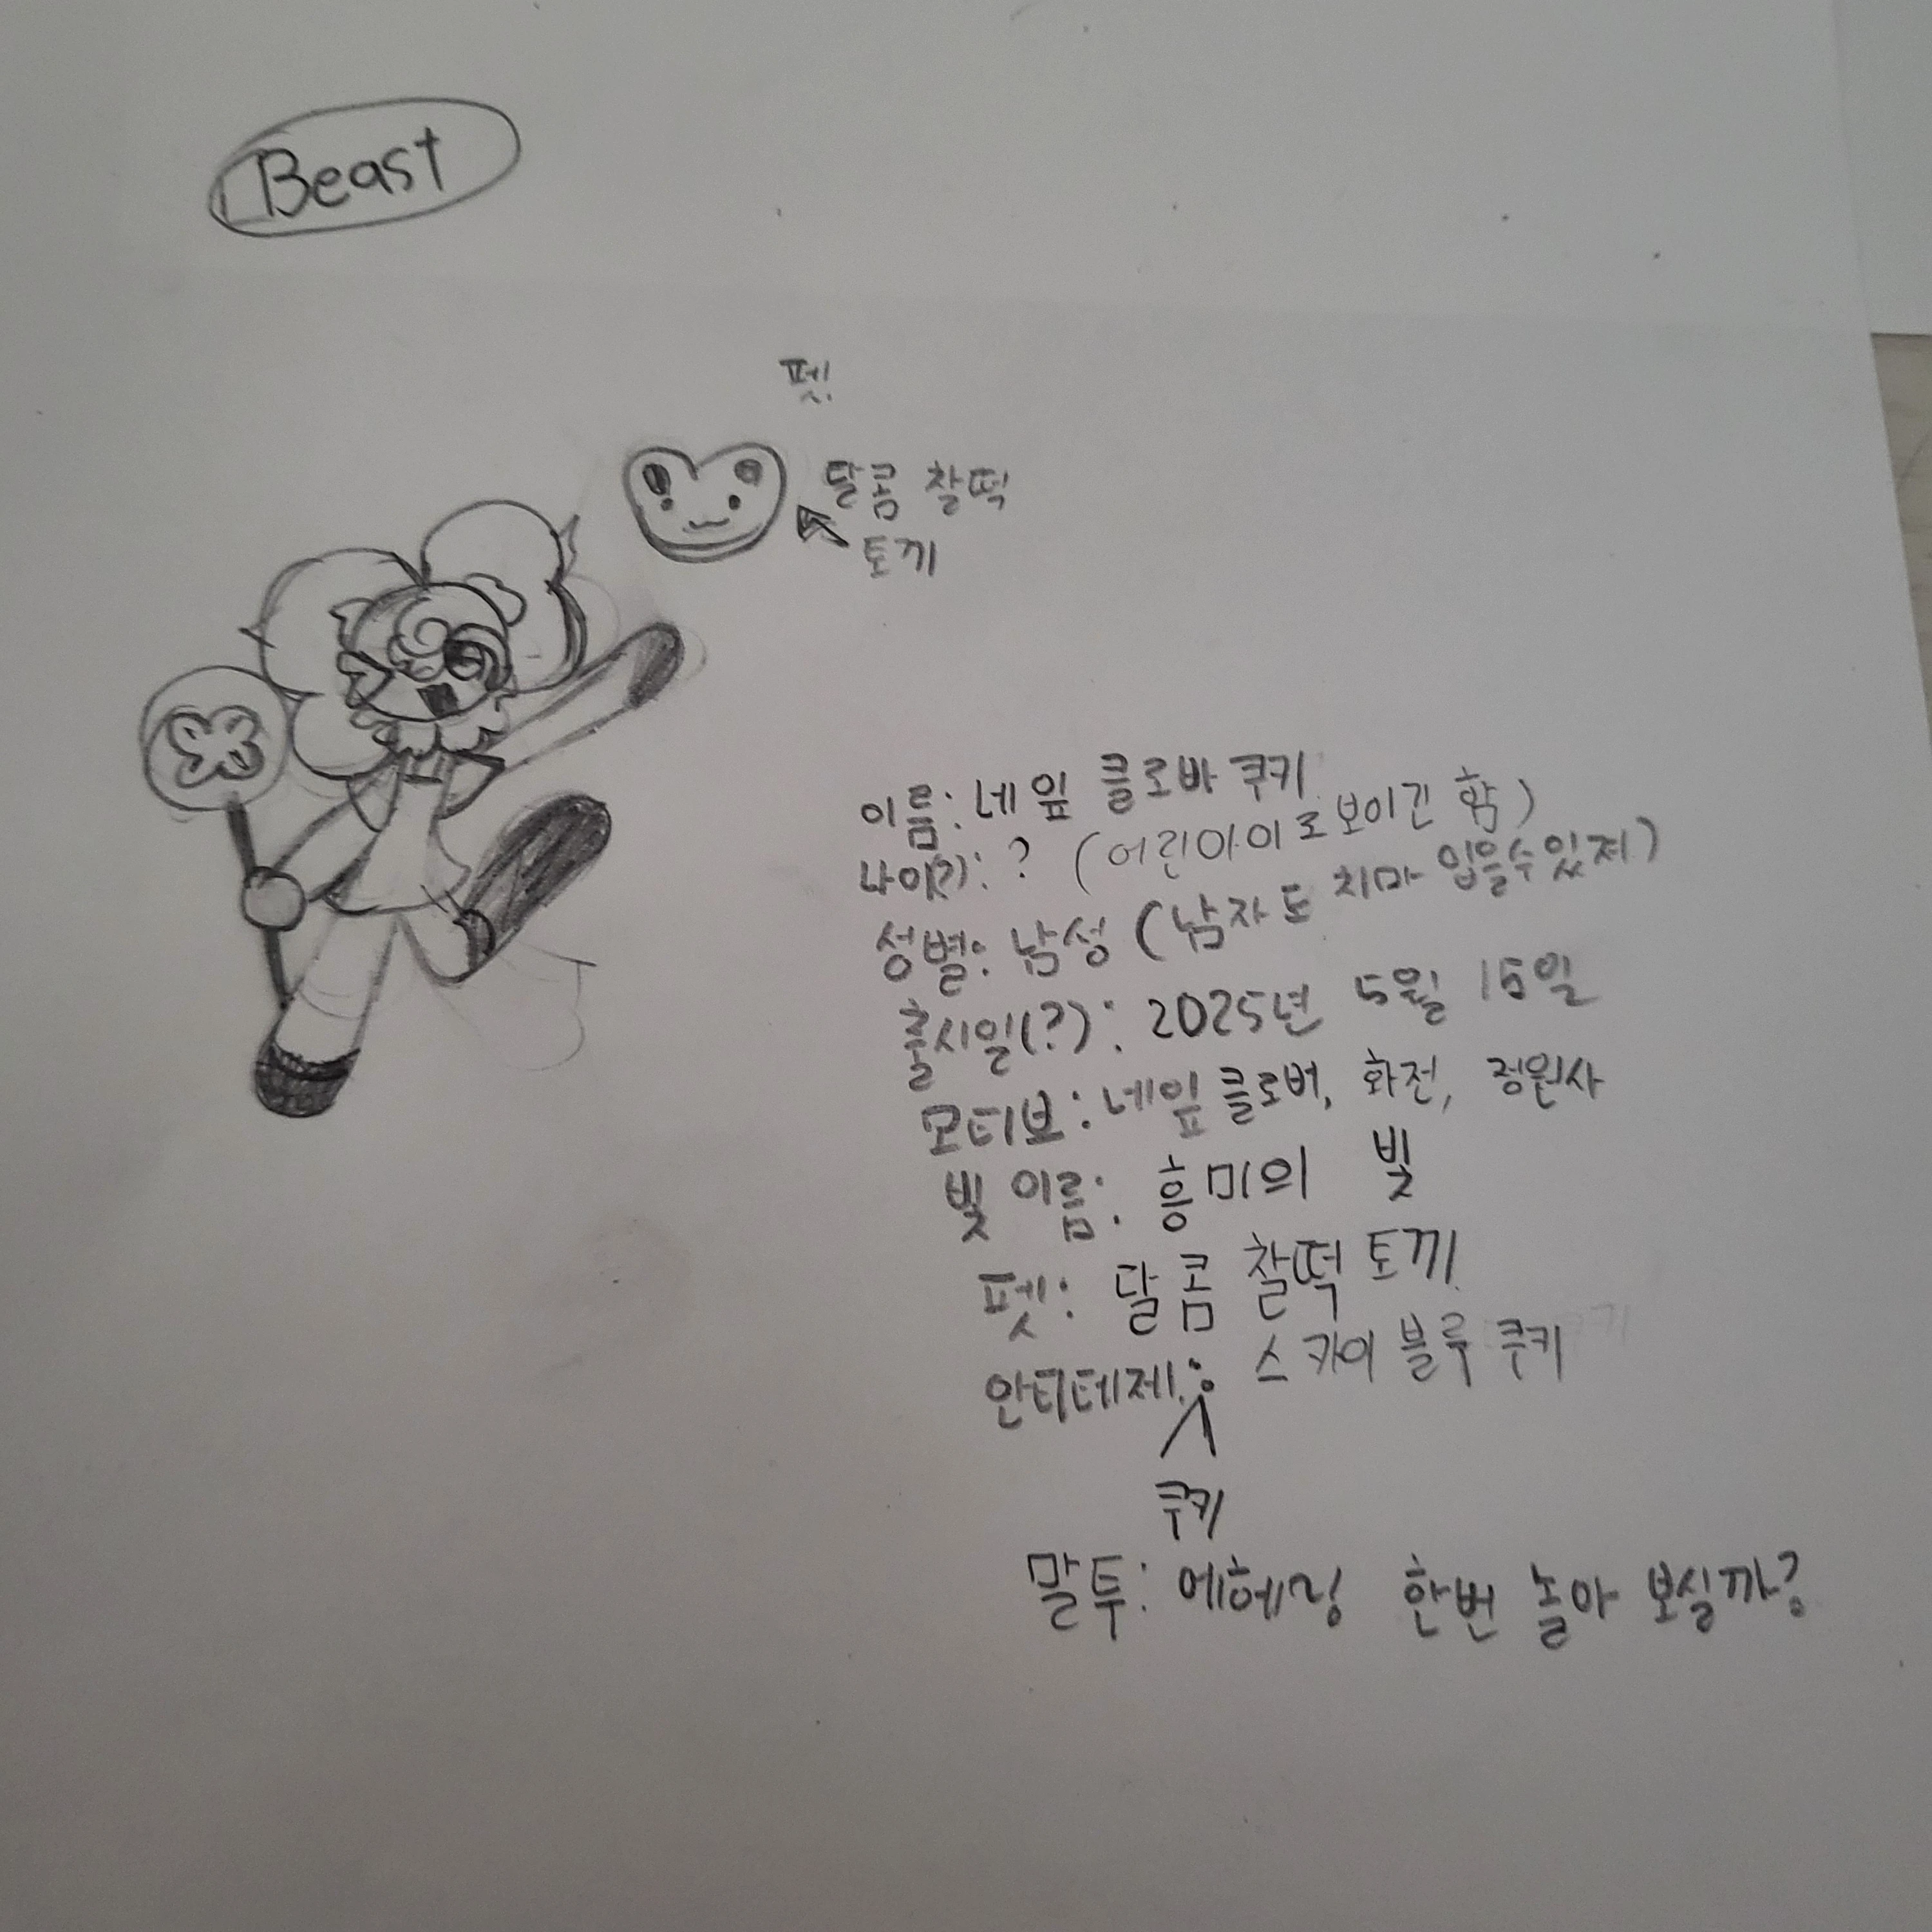 Beast
펫!
달콤 찰떡
토끼
이름: 네잎 클로바 쿠키
나이(?): ? (어린아이로 보이긴 함)
성별: 남성 (남자도 치마 입을수있져)
출시일(?): 2025년 5월 15일
모티브: 네잎클로버, 화전, 정원사
빛 이름: 흥미의 빛
펫: 달콤 찰떡 토끼
안티테제: 스카이 블루 쿠키
쿠키
말투: 에헤링 한번 놀아 보실까?